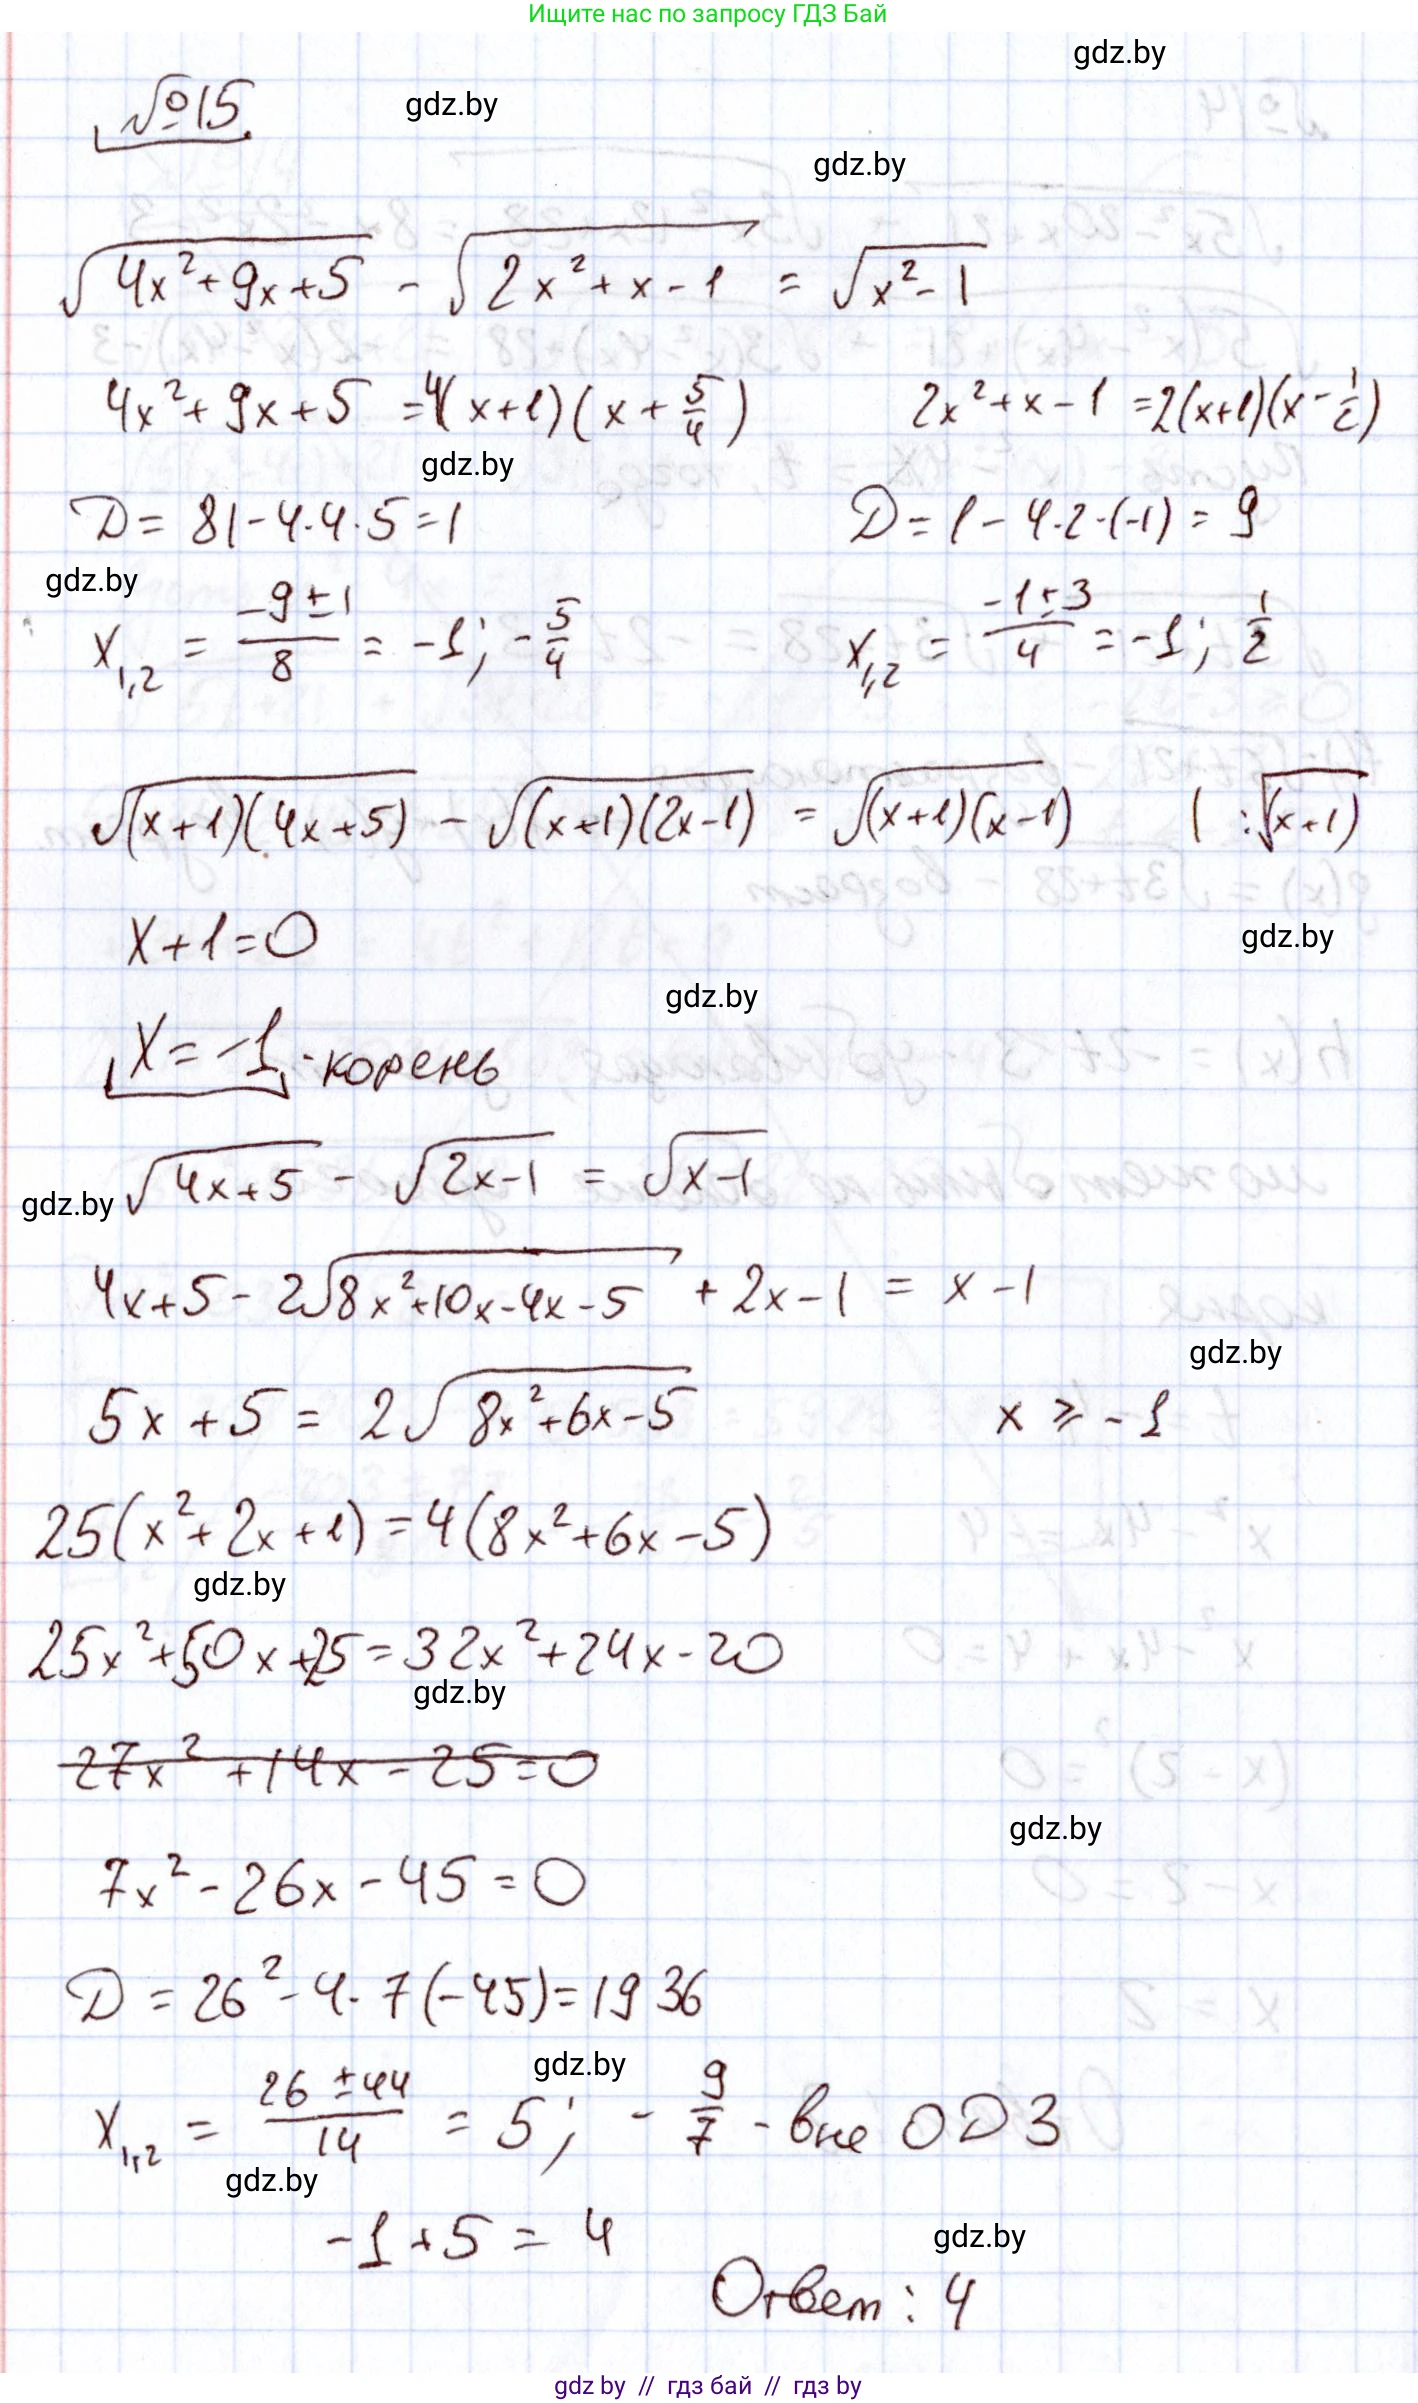 Ищите нас по запросу ГДЗ Бай
gdz.by
№15.
gdz.by
gdz.by
√(4x²+9x+5) - √(2x²+x-1) = √(x²-1)
4x²+9x+5 =4(x+1)(x+5/4) 2x²+x-1 =2(x+1)(x-1/2)
gdz.by
D= 81-4·4·5=1 D=1-4·2·(-1)=9
gdz.by
x₁,₂ = (-9±1)/8 = -1; -5/4 x₁,₂ = (-1±3)/4 = -1; 1/2
√((x+1)(4x+5)) - √((x+1)(2x-1)) = √((x+1)(x-1)) | :√(x+1)
x+1=0
gdz.by
gdz.by
x=-1 - корень
√(4x+5) - √(2x-1) = √(x-1)
gdz.by
4x+5-2√(8x²+10x-4x-5) + 2x-1 = x-1
gdz.by
5x+5= 2√(8x²+6x-5) x ≥ -1
25(x²+2x+1)=4(8x²+6x-5)
gdz.by
25x²+50x+25=32x²+24x-20
gdz.by
27x²+14x-25=0
gdz.by
7x²-26x-45=0
D=26²-4·7(-45)=1936
gdz.by
x₁,₂ = (26±44)/14 = 5; -9/7 - вне ОДЗ
gdz.by
-1+5=4
gdz.by
Ответ: 4
gdz.by // гдз бай // гдз by